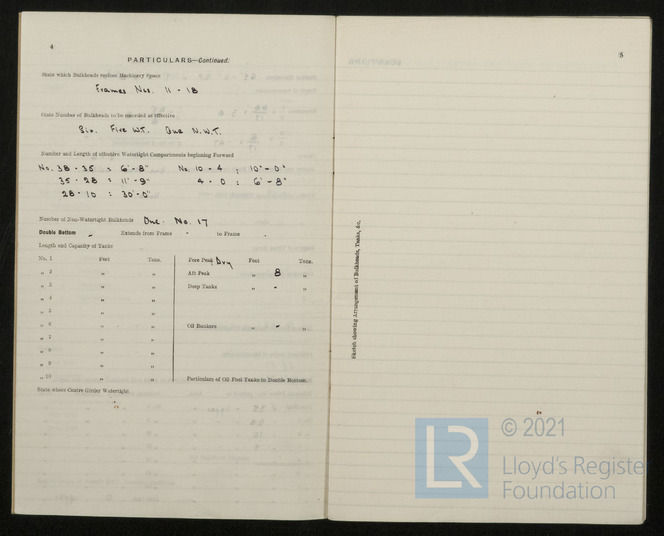 4
PARTICULARS—Continued.
State which Bulkheads enclose Machinery Space
Frames Nos. 11 - 18
State Number of Bulkheads to be recorded as effective
Six. Five W.T. One N.W.T.
Number and Length of effective Watertight Compartments beginning Forward
No. 38 - 35 : 6'-8" No. 10 - 4 : 10'-0"
35 - 28 : 11'-9" 4 - 0 : 6'-8"
28 - 10 : 30'-0"
Number of Non-Watertight Bulkheads One. No. 17
Double Bottom - Extends from Frame - to Frame
Length and Capacity of Tanks
No. 1 Feet Tons. Fore Peak Dry Feet Tons.
„ 2 „ „ Aft Peak „ 8 „
„ 3 „ „ Deep Tanks „ - „
„ 4 „ „
„ 5 „ „
„ 6 „ „ Oil Bunkers „ - „
„ 7 „ „
„ 8 „ „
„ 9 „ „
„ 10 „ „ Particulars of Oil Fuel Tanks in Double Bottom.
State where Centre Girder Watertight
5
Sketch showing Arrangement of Bulkheads, Tanks, &c.
LR
© 2021
Lloyd's Registe
Foundation